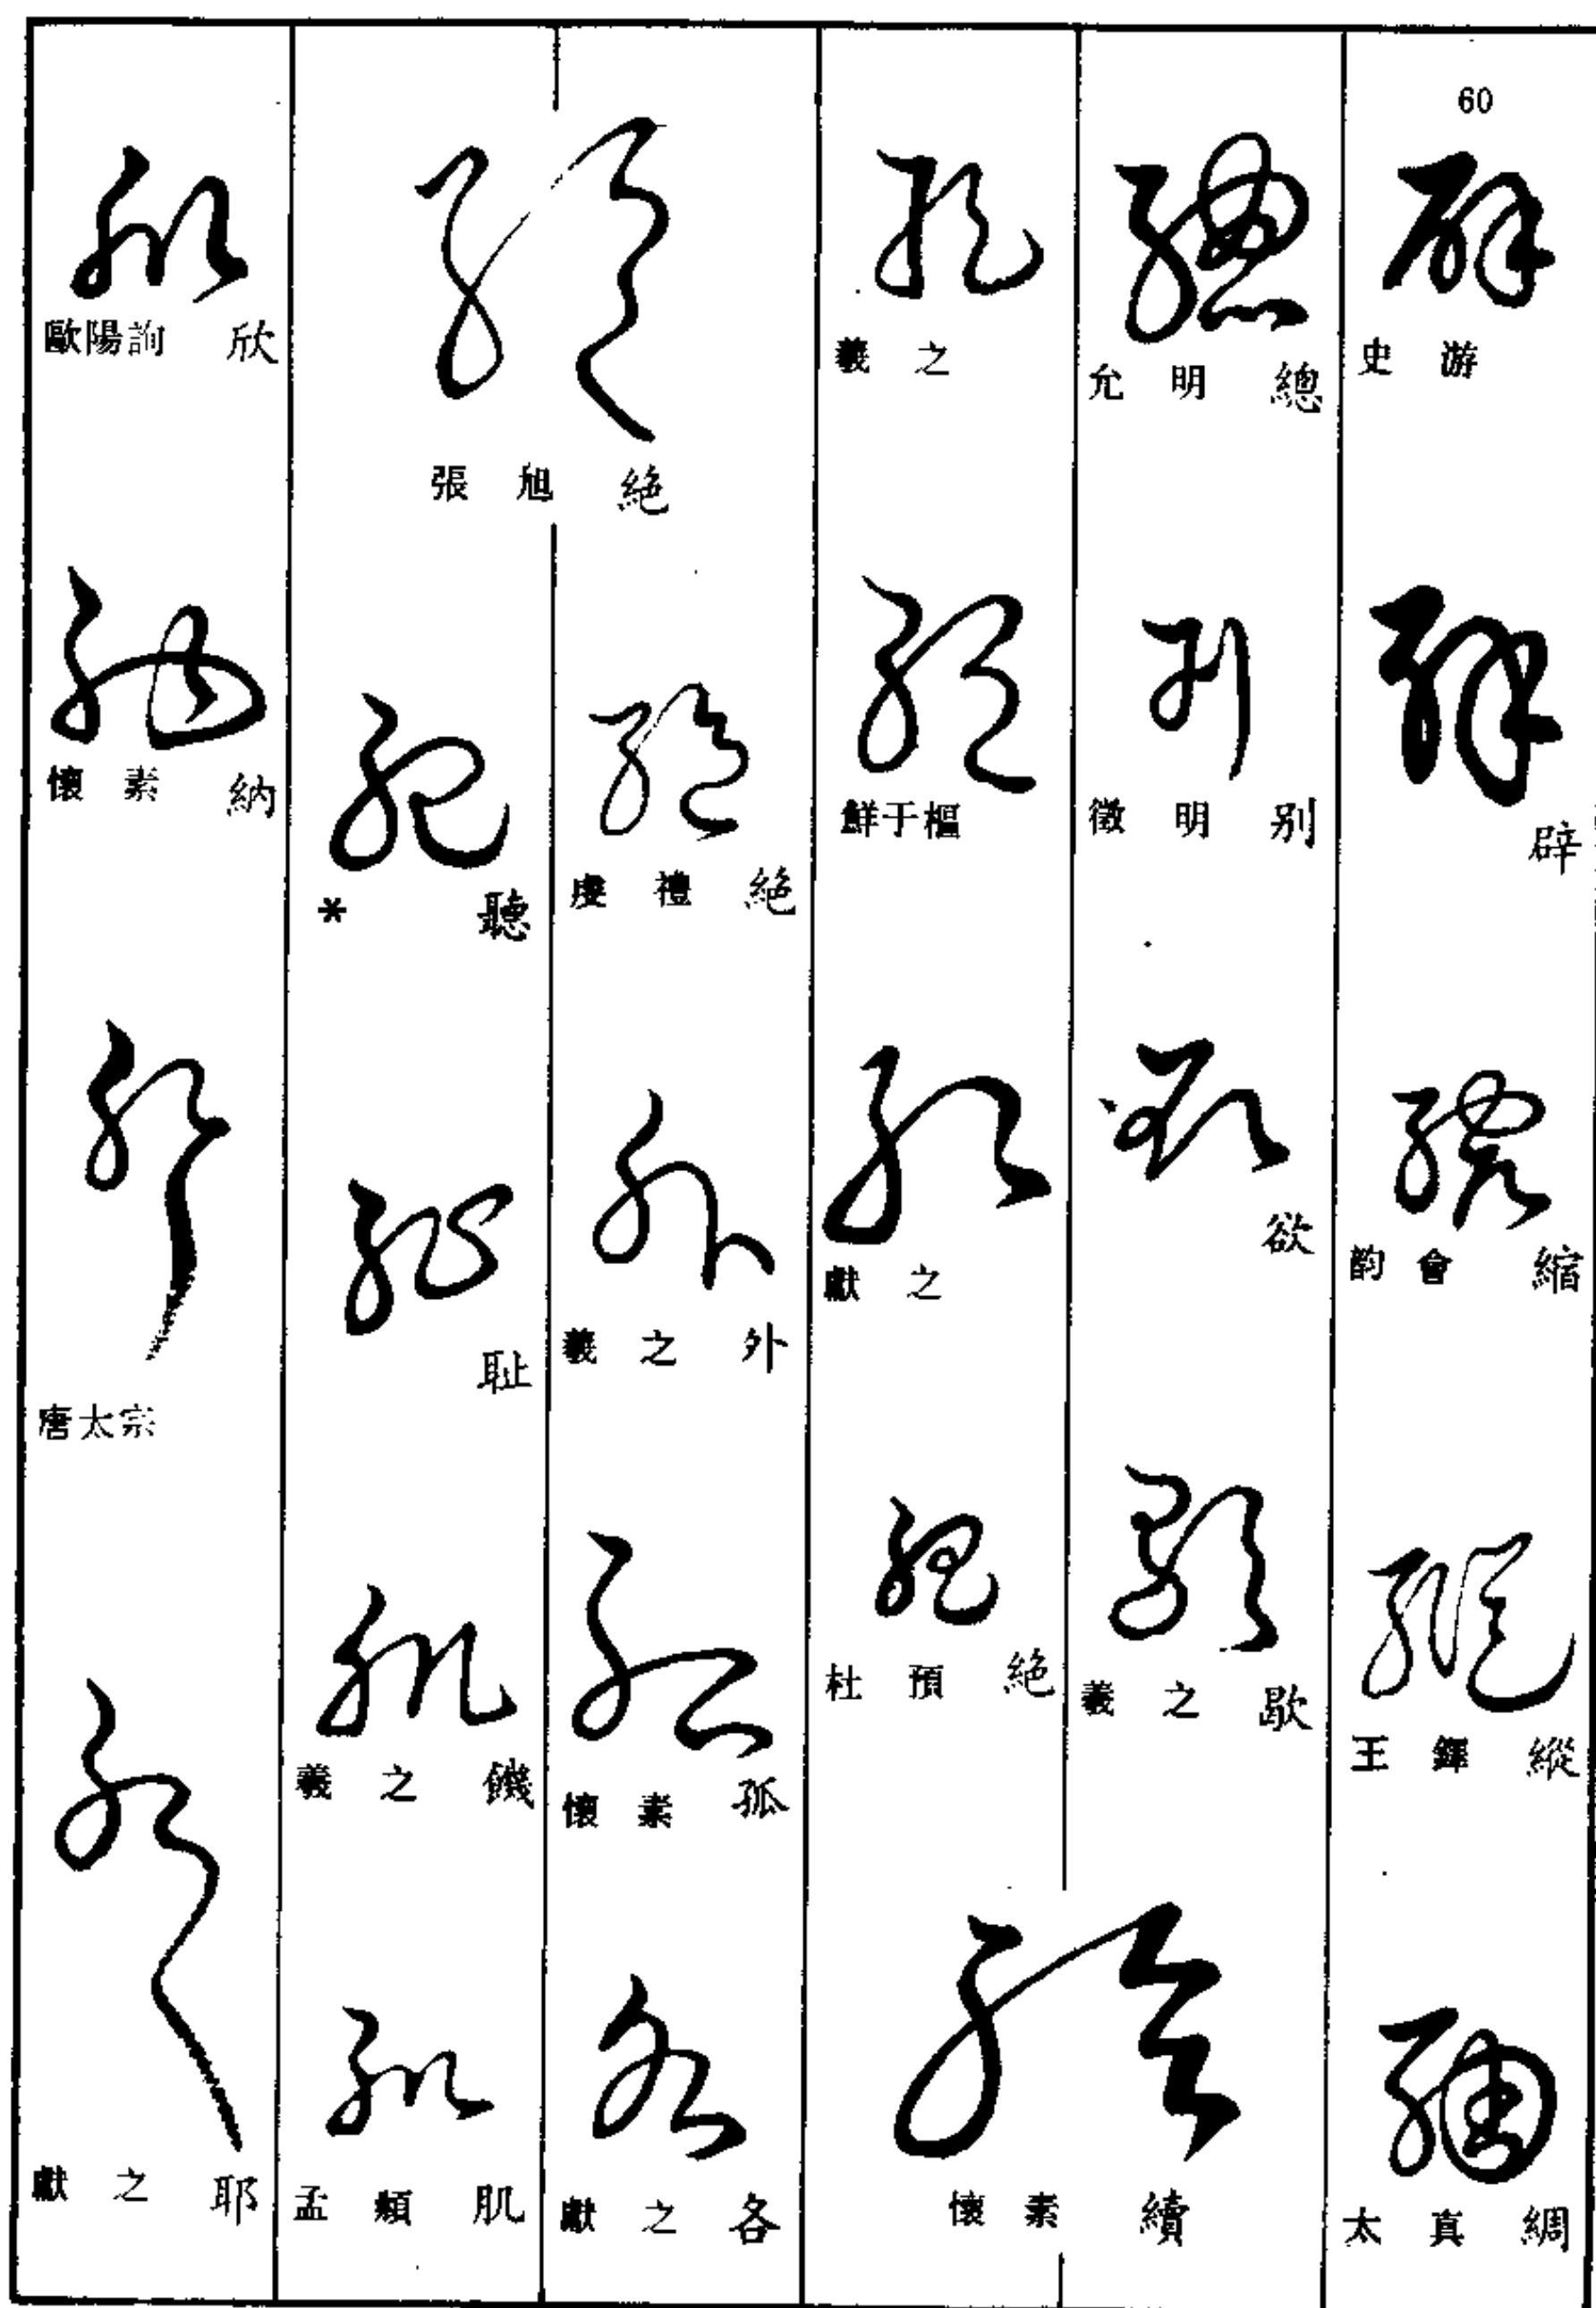 60
史游
辟
韵會 縮
王鐸 縱
太真 綢
允明 總
徵明 别
欲
羲之 歇
懷素 續
羲之
鮮于樞
獻之
杜預 絕
張旭 絕
虞禮 絕
羲之 外
懷素 孤
獻之 各
* 聽
耻
羲之 饑
孟頫 肌
歐陽詢 欣
懷素 納
唐太宗
獻之 耶